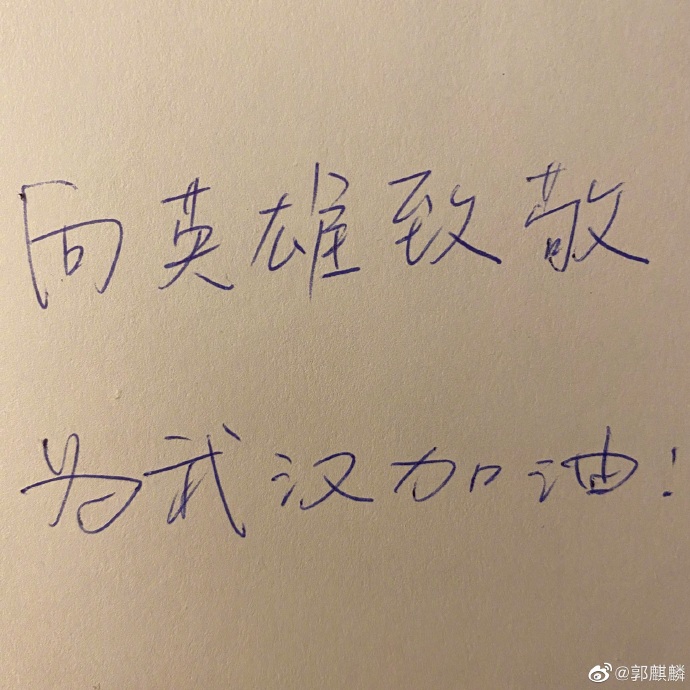 向英雄致敬
为武汉加油！
@郭麒麟